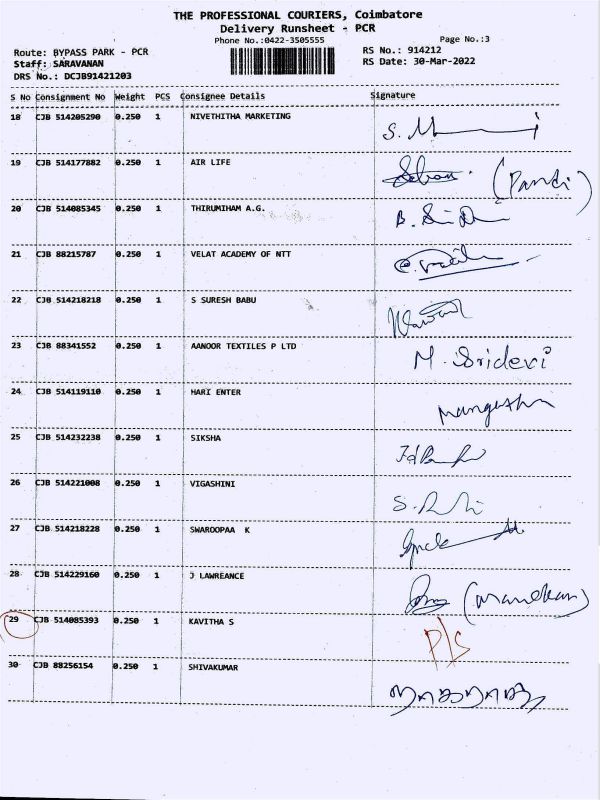 THE PROFESSIONAL COURIERS, Coimbatore
Delivery Runsheet - PCR
Phone No.:0422-3505555
Page No.:3
Route: BYPASS PARK - PCR
RS No.: 914212
Staff: SARAVANAN
RS Date: 30-Mar-2022
DRS No.: DCJB91421203
S No Consignment No Weight PCS Consignee Details Signature
18 CJB 514205290 0.250 1 NIVETHITHA MARKETING
19 CJB 514177882 0.250 1 AIR LIFE (Pandi)
20 CJB 514085345 0.250 1 THIRUMIHAM A.G.
21 CJB 88215787 0.250 1 VELAT ACADEMY OF NTT
22 CJB 514218218 0.250 1 S SURESH BABU
23 CJB 88341552 0.250 1 AANOOR TEXTILES P LTD M. Sridevi
24 CJB 514119110 0.250 1 HARI ENTER
25 CJB 514232238 0.250 1 SIKSHA
26 CJB 514221008 0.250 1 VIGASHINI
27 CJB 514218228 0.250 1 SWAROOPAA K
28 CJB 514229160 0.250 1 J LAWREANCE
29 CJB 514085393 0.250 1 KAVITHA S P/S
30 CJB 88256154 0.250 1 SHIVAKUMAR